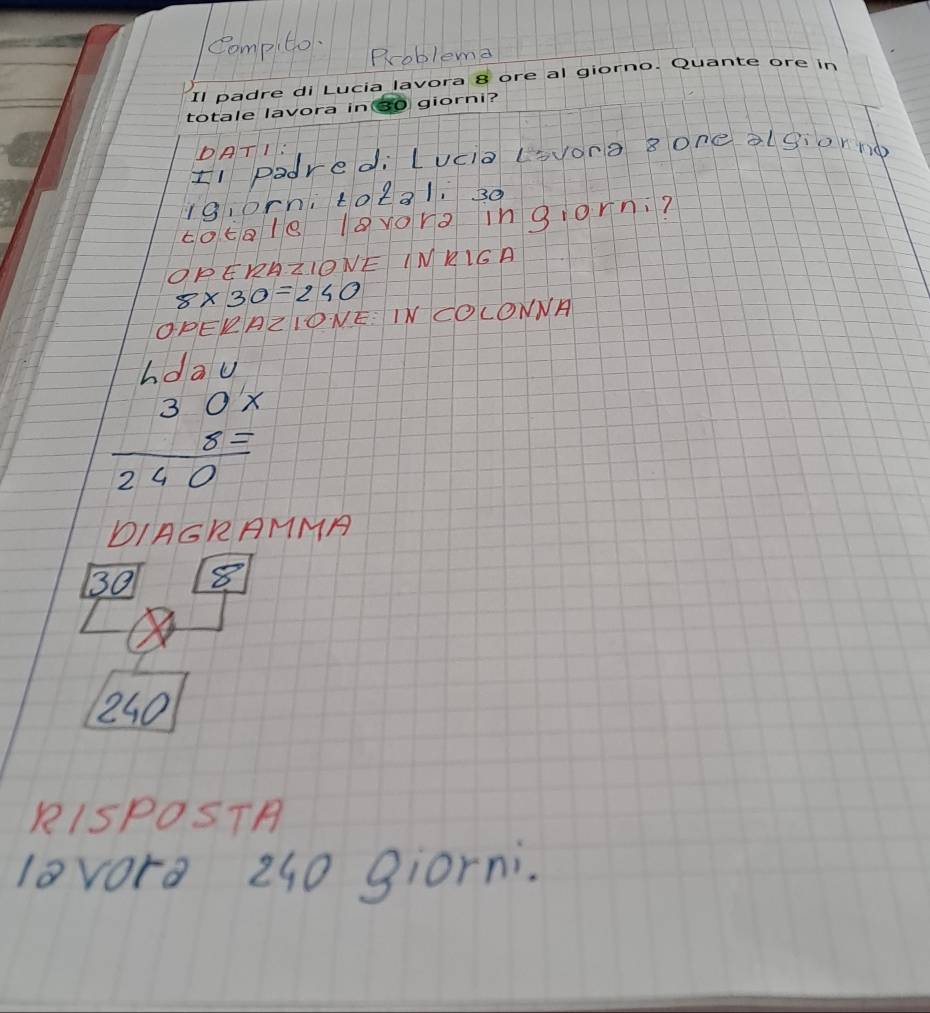 Compito.
Problema
Il padre di Lucia lavora 8 ore al giorno. Quante ore in
totale lavora in 30 giorni?
DATI:
Il padre di Lucia lavora 8 ore al giorno
i giorni totali 30
totale lavora in giorni?
OPERAZIONE IN RIGA
8 x 30 = 240
OPERAZIONE: IN COLONNA
h da u
3 0 x
8 =
2 4 0
DIAGRAMMA
30 8
X
240
RISPOSTA
lavora 240 giorni.